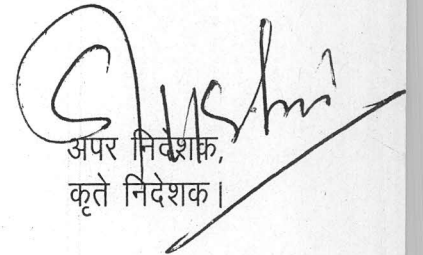 अपर निदेशक,
कृते निदेशक।